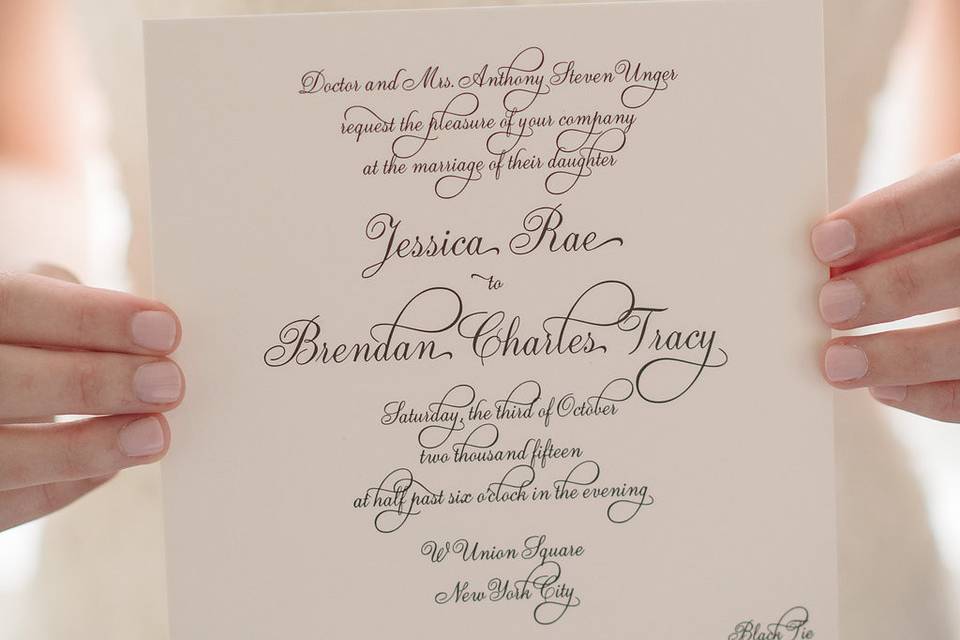 Doctor and Mrs. Anthony Steven Unger
request the pleasure of your company
at the marriage of their daughter
Jessica Rae
to
Brendan Charles Tracy
Saturday, the third of October
two thousand fifteen
at half past six o'clock in the evening
W Union Square
New York City
Black Tie